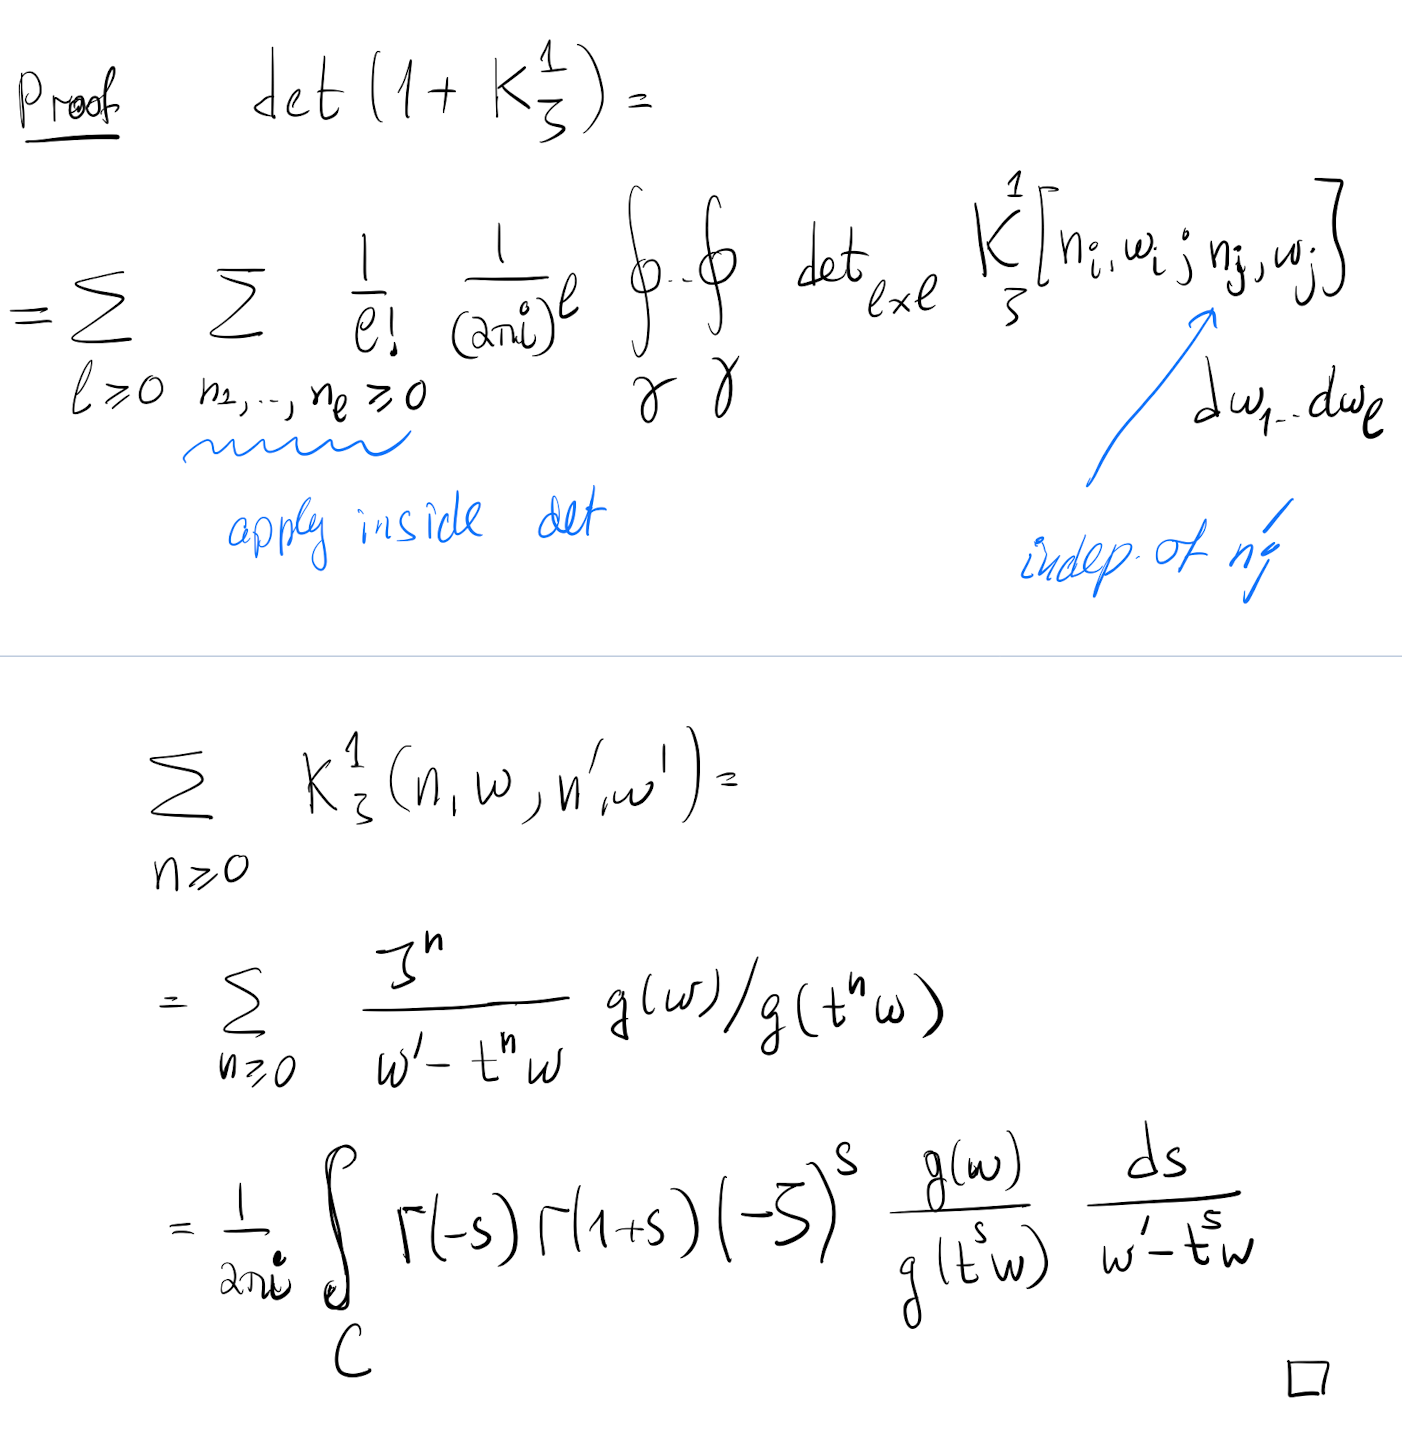 Proof det (1 + K^1_ζ) =
= Σ_{ℓ≥0} Σ_{n_1,..,n_ℓ ≥ 0} 1/ℓ! 1/(2πi)^ℓ ∮_γ..∮_γ det_{ℓ×ℓ} K^1_ζ [n_i, w_i ; n_j, w_j]
dw_1...dw_ℓ
apply inside det
indep. of n'_j
Σ_{n≥0} K^1_ζ (n, w, n', w') =
= Σ_{n≥0} ζ^n / (w' - t^n w) g(w)/g(t^n w)
= 1/(2πi) ∫_C Γ(-s) Γ(1+s) (-ζ)^s g(w)/g(t^s w) ds/(w' - t^s w)
□